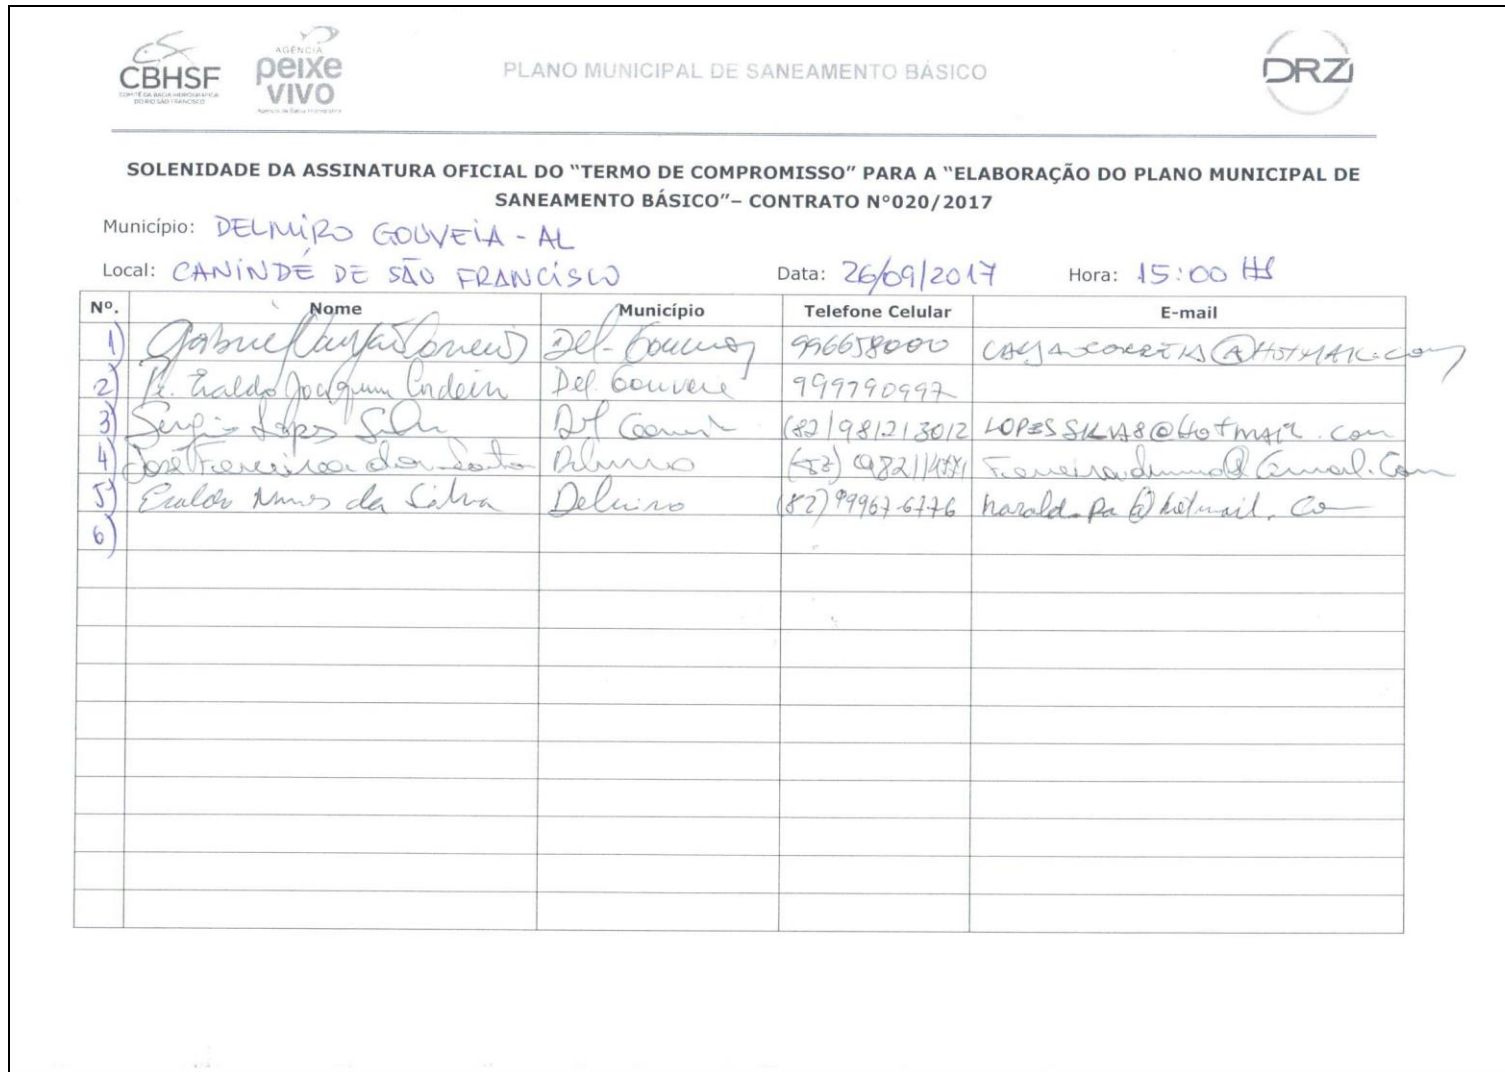 CBHSF
COMITÊ DA BACIA HIDROGRÁFICA
DO RIO SÃO FRANCISCO
AGÊNCIA
peixe
vivo
PLANO MUNICIPAL DE SANEAMENTO BÁSICO
DRZ
SOLENIDADE DA ASSINATURA OFICIAL DO "TERMO DE COMPROMISSO" PARA A "ELABORAÇÃO DO PLANO MUNICIPAL DE
SANEAMENTO BÁSICO"– CONTRATO Nº020/2017
Município: DELMIRO GOUVEIA - AL
Local: CANINDÉ DE SÃO FRANCISCO Data: 26/09/2017 Hora: 15:00 HS
Nº. Nome Município Telefone Celular E-mail
1) Gabriel Del. 996658000
2) Pe. Eraldo Joaquim Cordeiro Del. Gouveia 999790997
3) Sergio Lopes Silva Del (82) 981213012 LOPESSILVA8@HOTMAIL.com
4) José Ferreira dos Santos Delmiro
5) Eraldo Nunes da Silva Delmiro (82) 99967-6776
6)